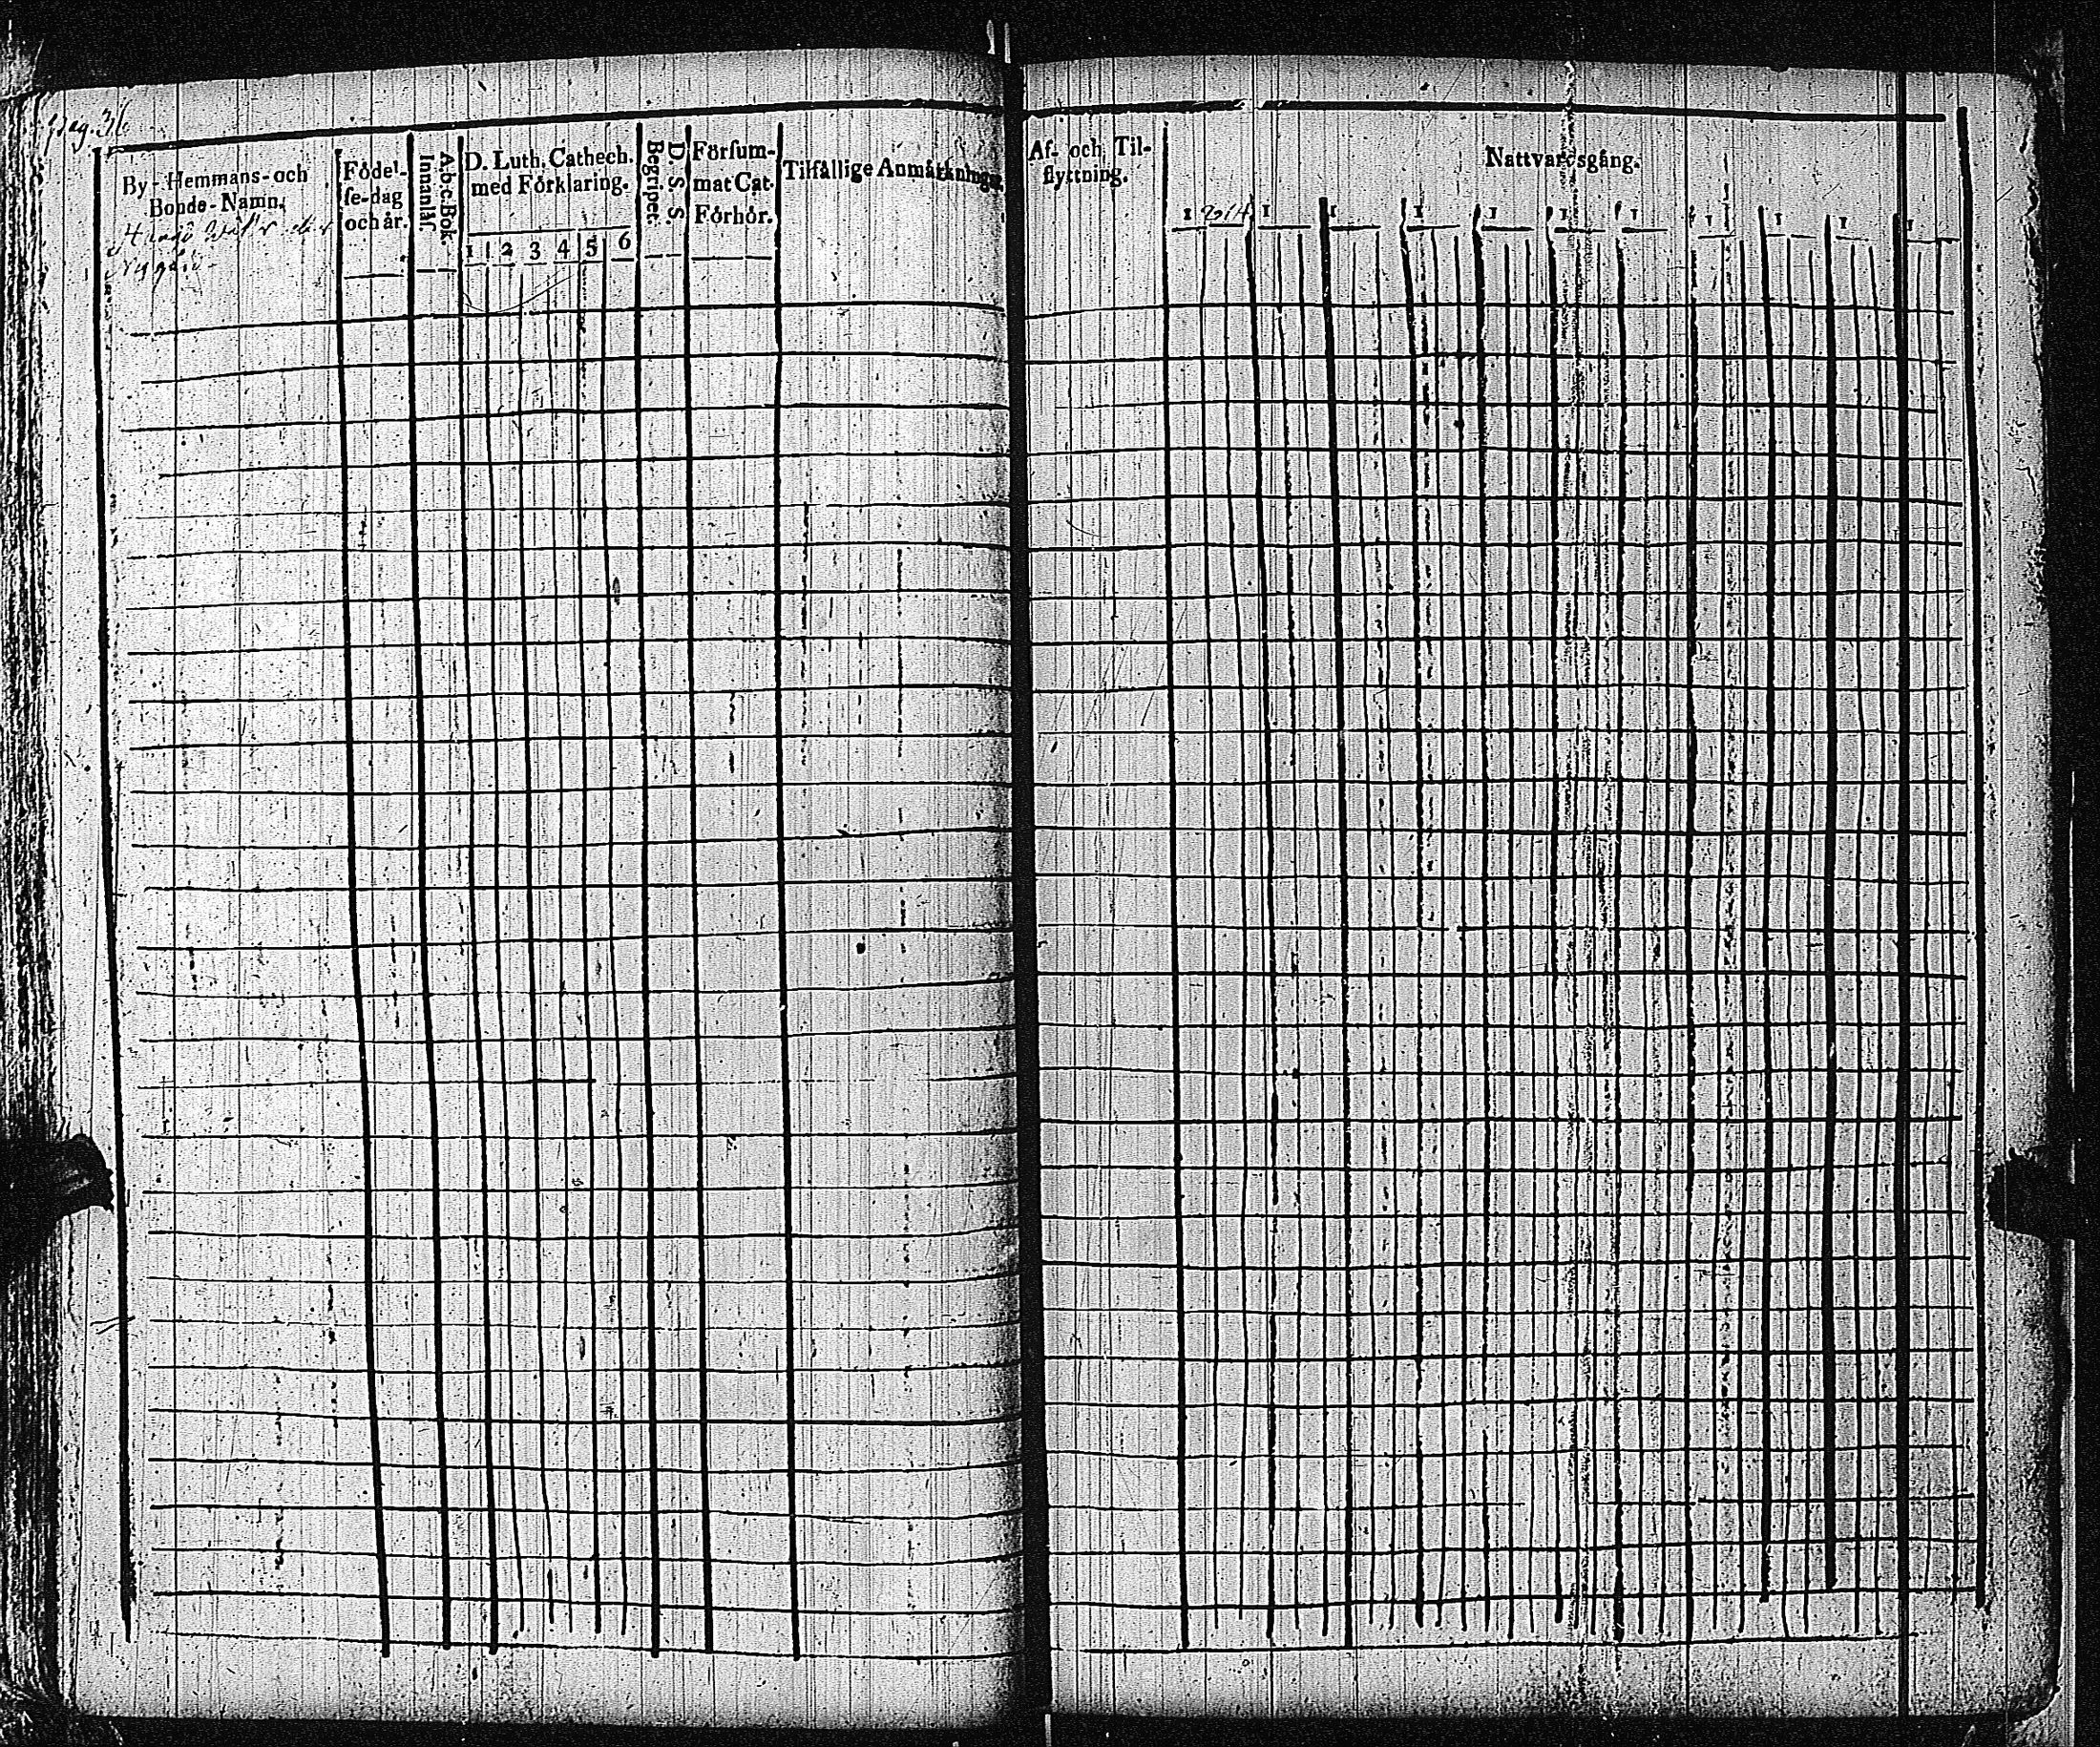 pag. 36
By-Hemmans-och
Bonde-Namn.
Fôdel-
se-dag
och år.
A.b.c. Bok.
Innanläs.
D. Luth. Cathech.
med Fôrklaring.
1 2 3 4 5 6
D. S. S.
Begripet.
Förſum-
mat Cat.
Fôrhôr.
Tilfällige Anmärkningar
Af- och Til-
flyttning.
Nattvardsgång.
1 1 1 1 1 1 1 1 1 1 1